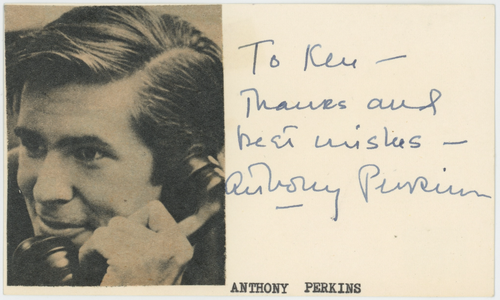 To Ken —
Thanks and
best wishes —
Anthony Perkins
ANTHONY PERKINS